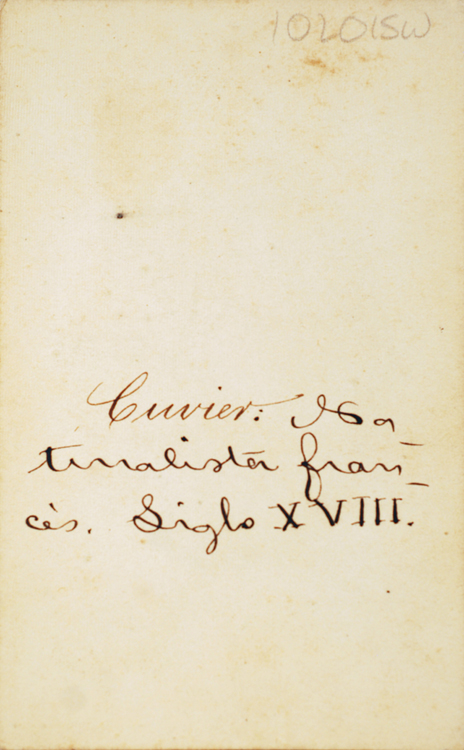 102015W
Cuvier: Na-
turalista fran-
cès. Siglo XVIII.